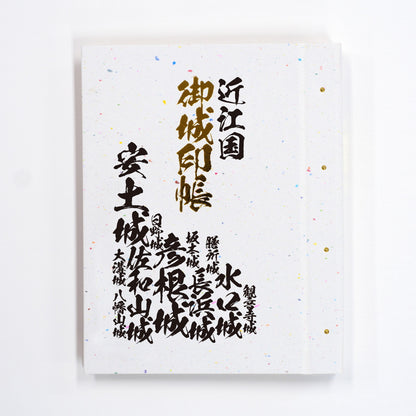 近江国
御城印帳
観音寺城
水口城
膳所城
長浜城
坂本城
彦根城
日野城
佐和山城
安土城
八幡山城
大溝城